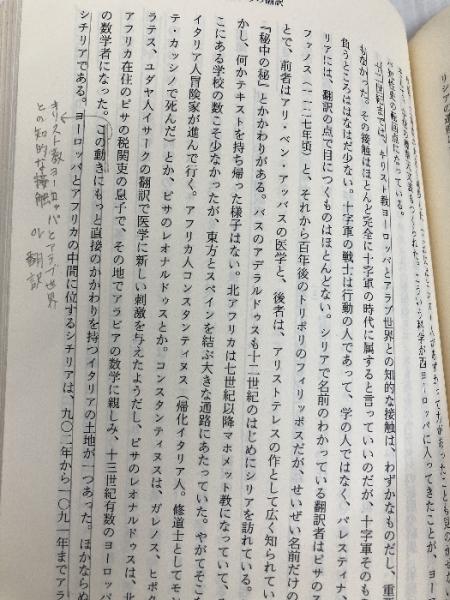 の翻訳
的な転回点になっている。
キリスト教ヨーロッパとアラブ世界との知的な接触は、わずかなものだし、重
もなかった。その接触はほとんど完全に十字軍の時代に属すると言っていいのだが、十字軍そのも
負うところははなはだ少ない。十字軍の戦士は行動の人であって、学の人ではなく、パレスティナ、
リアには、翻訳の点で目につくものはほとんどない。シリアで名前のわかっている翻訳者はピサのス
ファノス(一一二七年頃)と、それから百年後のトリポリのフィリッポスだが、せいぜい名前だけの
とで、前者はアリ・ベン・アッバスの医学と、後者は、アリストテレスの作として広く知られてい
『秘中の秘』とかかわりがある。バスのアデラルドゥスも十二世紀のはじめにシリアを訪れている。
かし、何かテキストを持ち帰った様子はない。北アフリカは七世紀以降マホメット教になっていて、
こにある学校の数こそ少なかったが、東方とスペインを結ぶ大きな通路にあたっていた。やがてそこ
イタリア人冒険家が進んで行く。アフリカ人コンスタンティヌス(帰化イタリア人。修道士としてモン
テ・カッシノで死んだ)とか、ピサのレオナルドゥスとか。コンスタンティヌスは、ガレノス、ヒポク
ラテス、ユダヤ人イサークの翻訳で医学に新しい刺激を与えたようだし、ピサのレオナルドゥスは、北
アフリカ在住のピサの税関吏の息子で、その地でアラビアの数学に親しみ、十三世紀有数のヨーロッパ
の数学者になった。この動きにもっと直接のかかわりを持つイタリアの土地が一つあった。ほかならぬ
シチリアである。ヨーロッパとアフリカの中間に位するシチリアは、九〇二年から一〇九一年までアラ
キリスト教ヨーロッパとアラブ世界
との知的な接触 or 翻訳